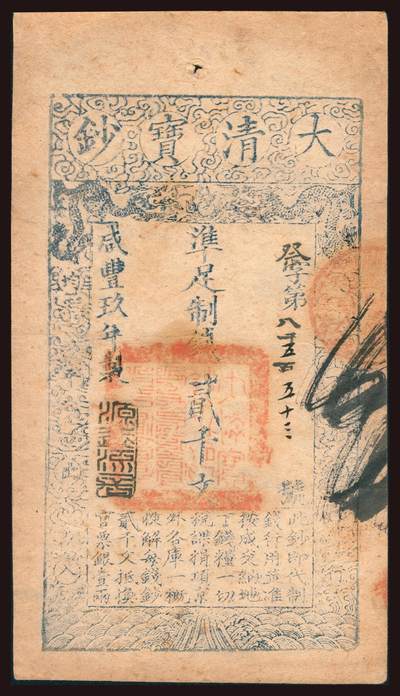 大清寶鈔
癸字第八千五百五十三號
準足制錢貳千文
咸豐玖年製
此鈔即代制
錢行用並準
按成交納地
丁錢糧一切
稅課捐項京
外各庫一概
收解每錢鈔
貳千文抵換
官票銀壹兩